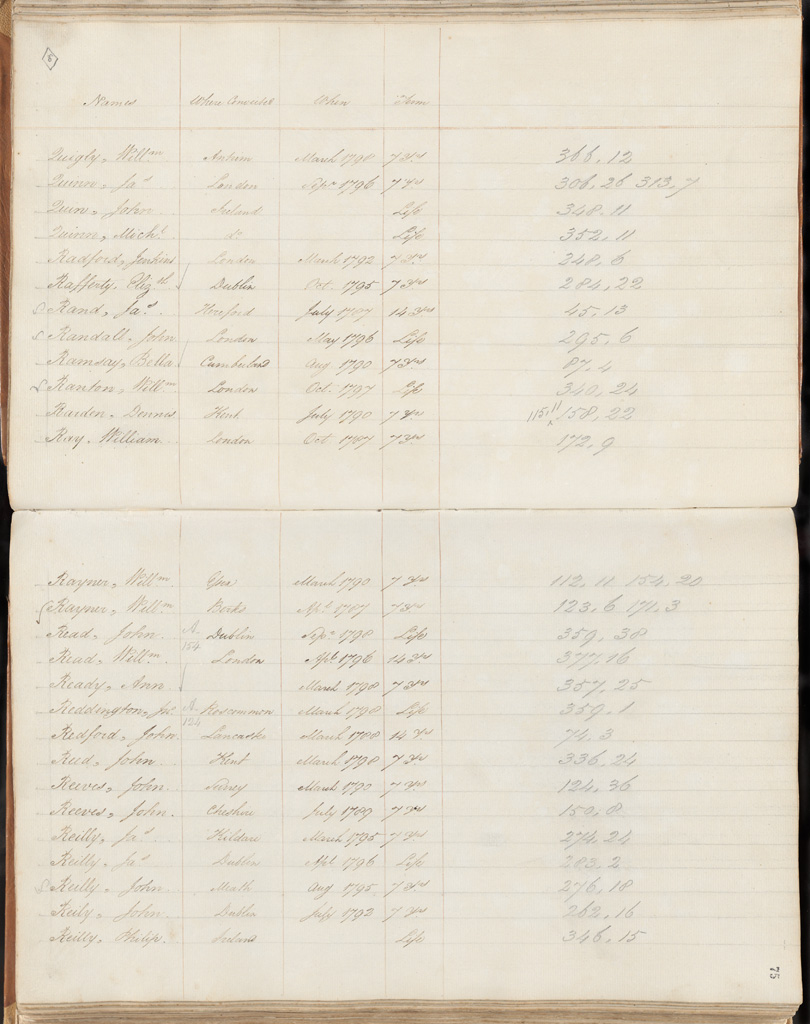 6
Names Where Convicted When Term
Quigly, Willm Antrim March 1798 7 Yrs 366, 12
Quinn, Jas London Sepr 1796 7 Yrs 306, 26 313, 7
Quin, John Ireland Life 348, 11
Quinn, Michl do Life 352, 11
Radford, Jenkins London March 1792 7 Yrs 248, 6
Rafferty, Elizth Dublin Oct. 1795 7 Yrs 284, 22
Rand, Jas Hereford July 1787 14 Yrs 45, 13
Randall, John London May 1796 Life 295, 6
Ramsay, Bella Cumberland Aug 1790 7 Yrs 87, 4
Ranton, Willm London Oct. 1797 Life 340, 24
Raiden, Dennis Kent July 1790 7 Yrs 115, 11 x 158, 22
Ray, William London Oct 1787 7 Yrs 172, 9
Rayner, Willm March 1790 7 Yrs 112, 11 154, 20
Rayner, Willm Berks Apl 1787 7 Yrs 123, 6 171, 3
Read, John A 154 Dublin Sepr 1798 Life 359, 38
Read, Willm London Apl 1796 14 Yrs 377, 16
Ready, Ann March 1798 7 Yrs 357, 25
Reddington, Jas A 124 Roscommon March 1798 Life 359, 1
Redford, John Lancaster March 1788 14 Yrs 74, 3
Reed, John Kent March 1798 7 Yrs 336, 24
Reeves, John Surrey March 1790 7 Yrs 124, 36
Reeves, John Cheshire July 1789 7 Yrs 150, 8
Reilly, Jas Kildare March 1795 7 Yrs 274, 24
Reilly, Jas Dublin Apl 1796 Life 283, 2
Reilly, John Meath Aug 1795 7 Yrs 276, 18
Reily, John Dublin July 1792 7 Yrs 262, 16
Reilly, Philip Ireland Life 346, 15
75